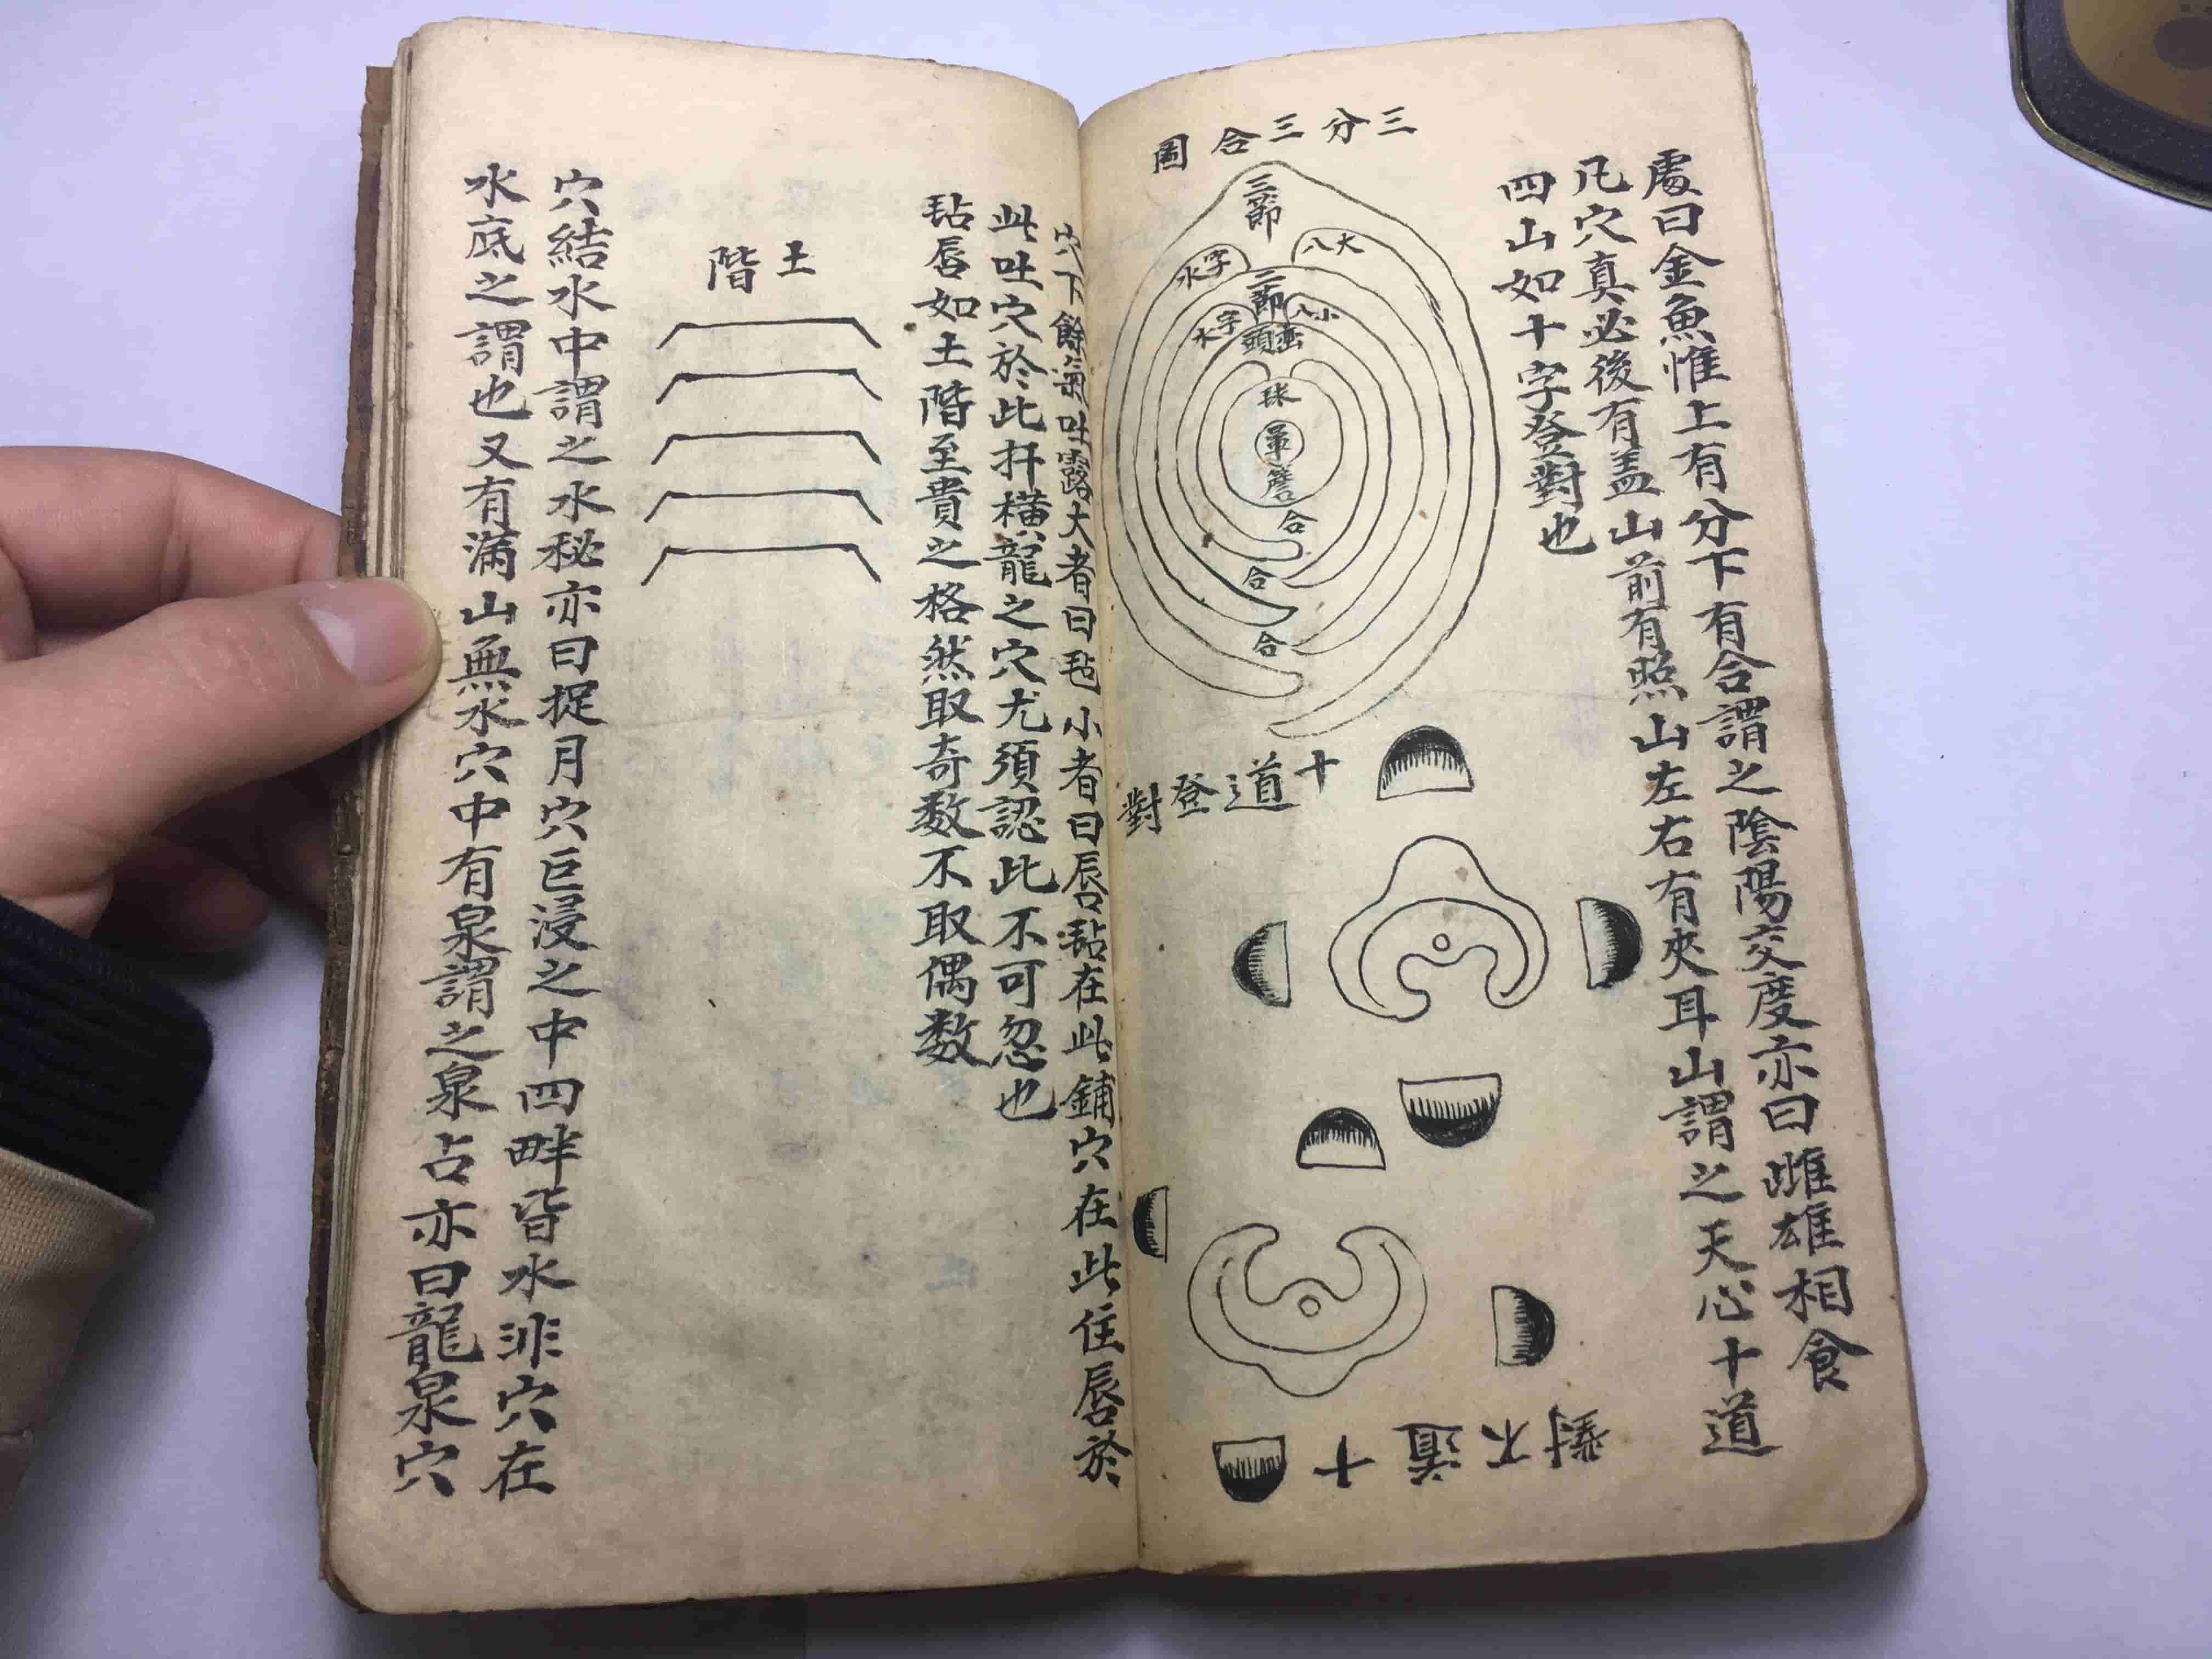 處曰金魚惟上有分下有合謂之陰陽交度亦曰雌雄相食
凡穴真必後有盖山前有照山左右有夾耳山謂之天心十道
四山如十字登對也
三分三合圖
三節
大八
字水
二節
小八
字水
巒頭
球
暈
簷
合
合
合
十道登對
十道不對
穴下餘氣吐露大者曰毡小者曰唇毡在此鋪穴在此住唇於
此吐穴於此扦横龍之穴尤須認此不可忽也
毡唇如土階至貴之格然取奇数不取偶数
土階
穴結水中謂之水秘亦曰捉月穴巨浸之中四畔皆水非穴在
水底之謂也又有滿山無水穴中有泉謂之泉占亦曰龍泉穴